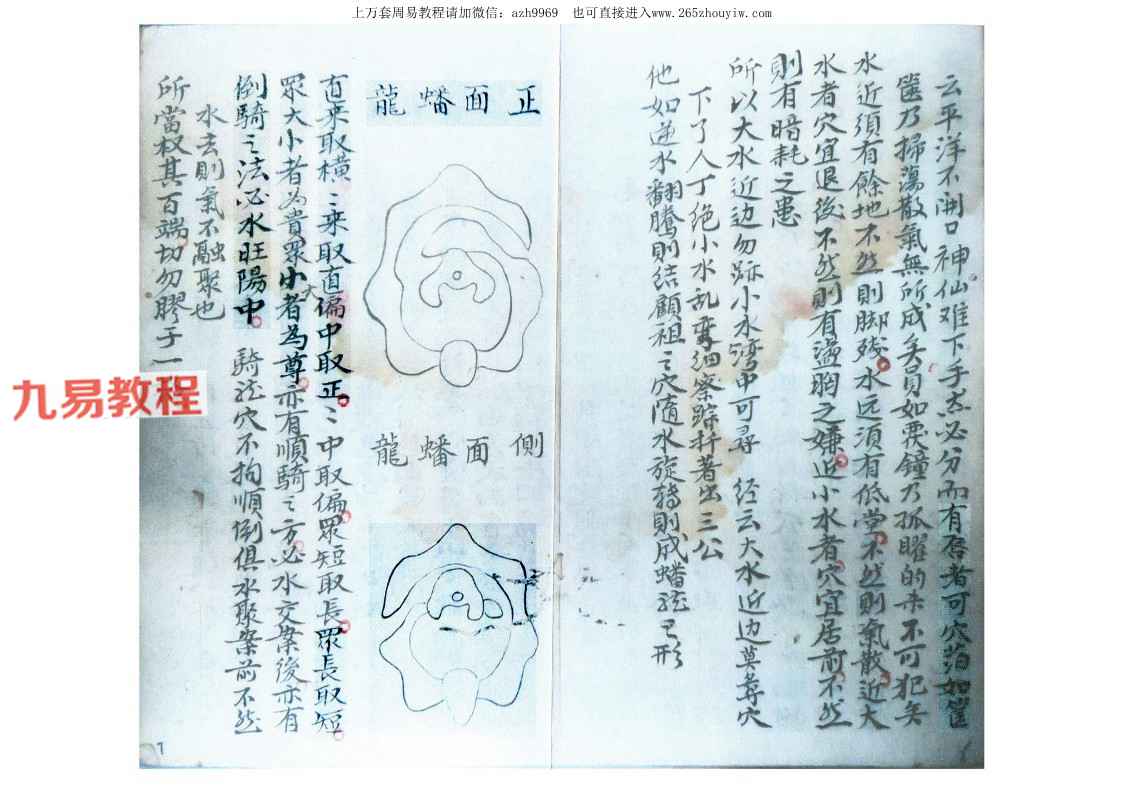 上万套周易教程请加微信：azh9969　也可直接进入www.265zhouyiw.com
云平洋不開口神仙难下手杰必分而有唇者可穴葯如篚
篚乃掃蕩散氣無所成矣員如覆鐘乃孤曜的来不可犯矣
水近須有餘地不然則脚殘水远須有低堂不然則氣散近大
水者穴宜退後不然則有盪胸之嫌近小水者穴宜居前不然
則有暗耗之患
所以大水近边勿跡小水湾中可尋　经云大水近边莫尋穴
下了人丁绝小水乱弯细察踪扦著出三公
他如逆水翻騰則结顧祖之穴隨水旋轉則成蟠龙之形
正面蟠龍
側面蟠龍
直来取横〻来取直偏中取正〻中取偏眾短取長眾長取短
眾大小者为貴眾小大者為尊亦有順騎之方必水交案後亦有
倒騎之法必水旺陽中　騎龙穴不拘順倒俱水聚案前不然
水去則氣不融聚也
所當权其百端切勿膠于一
九易教程
7